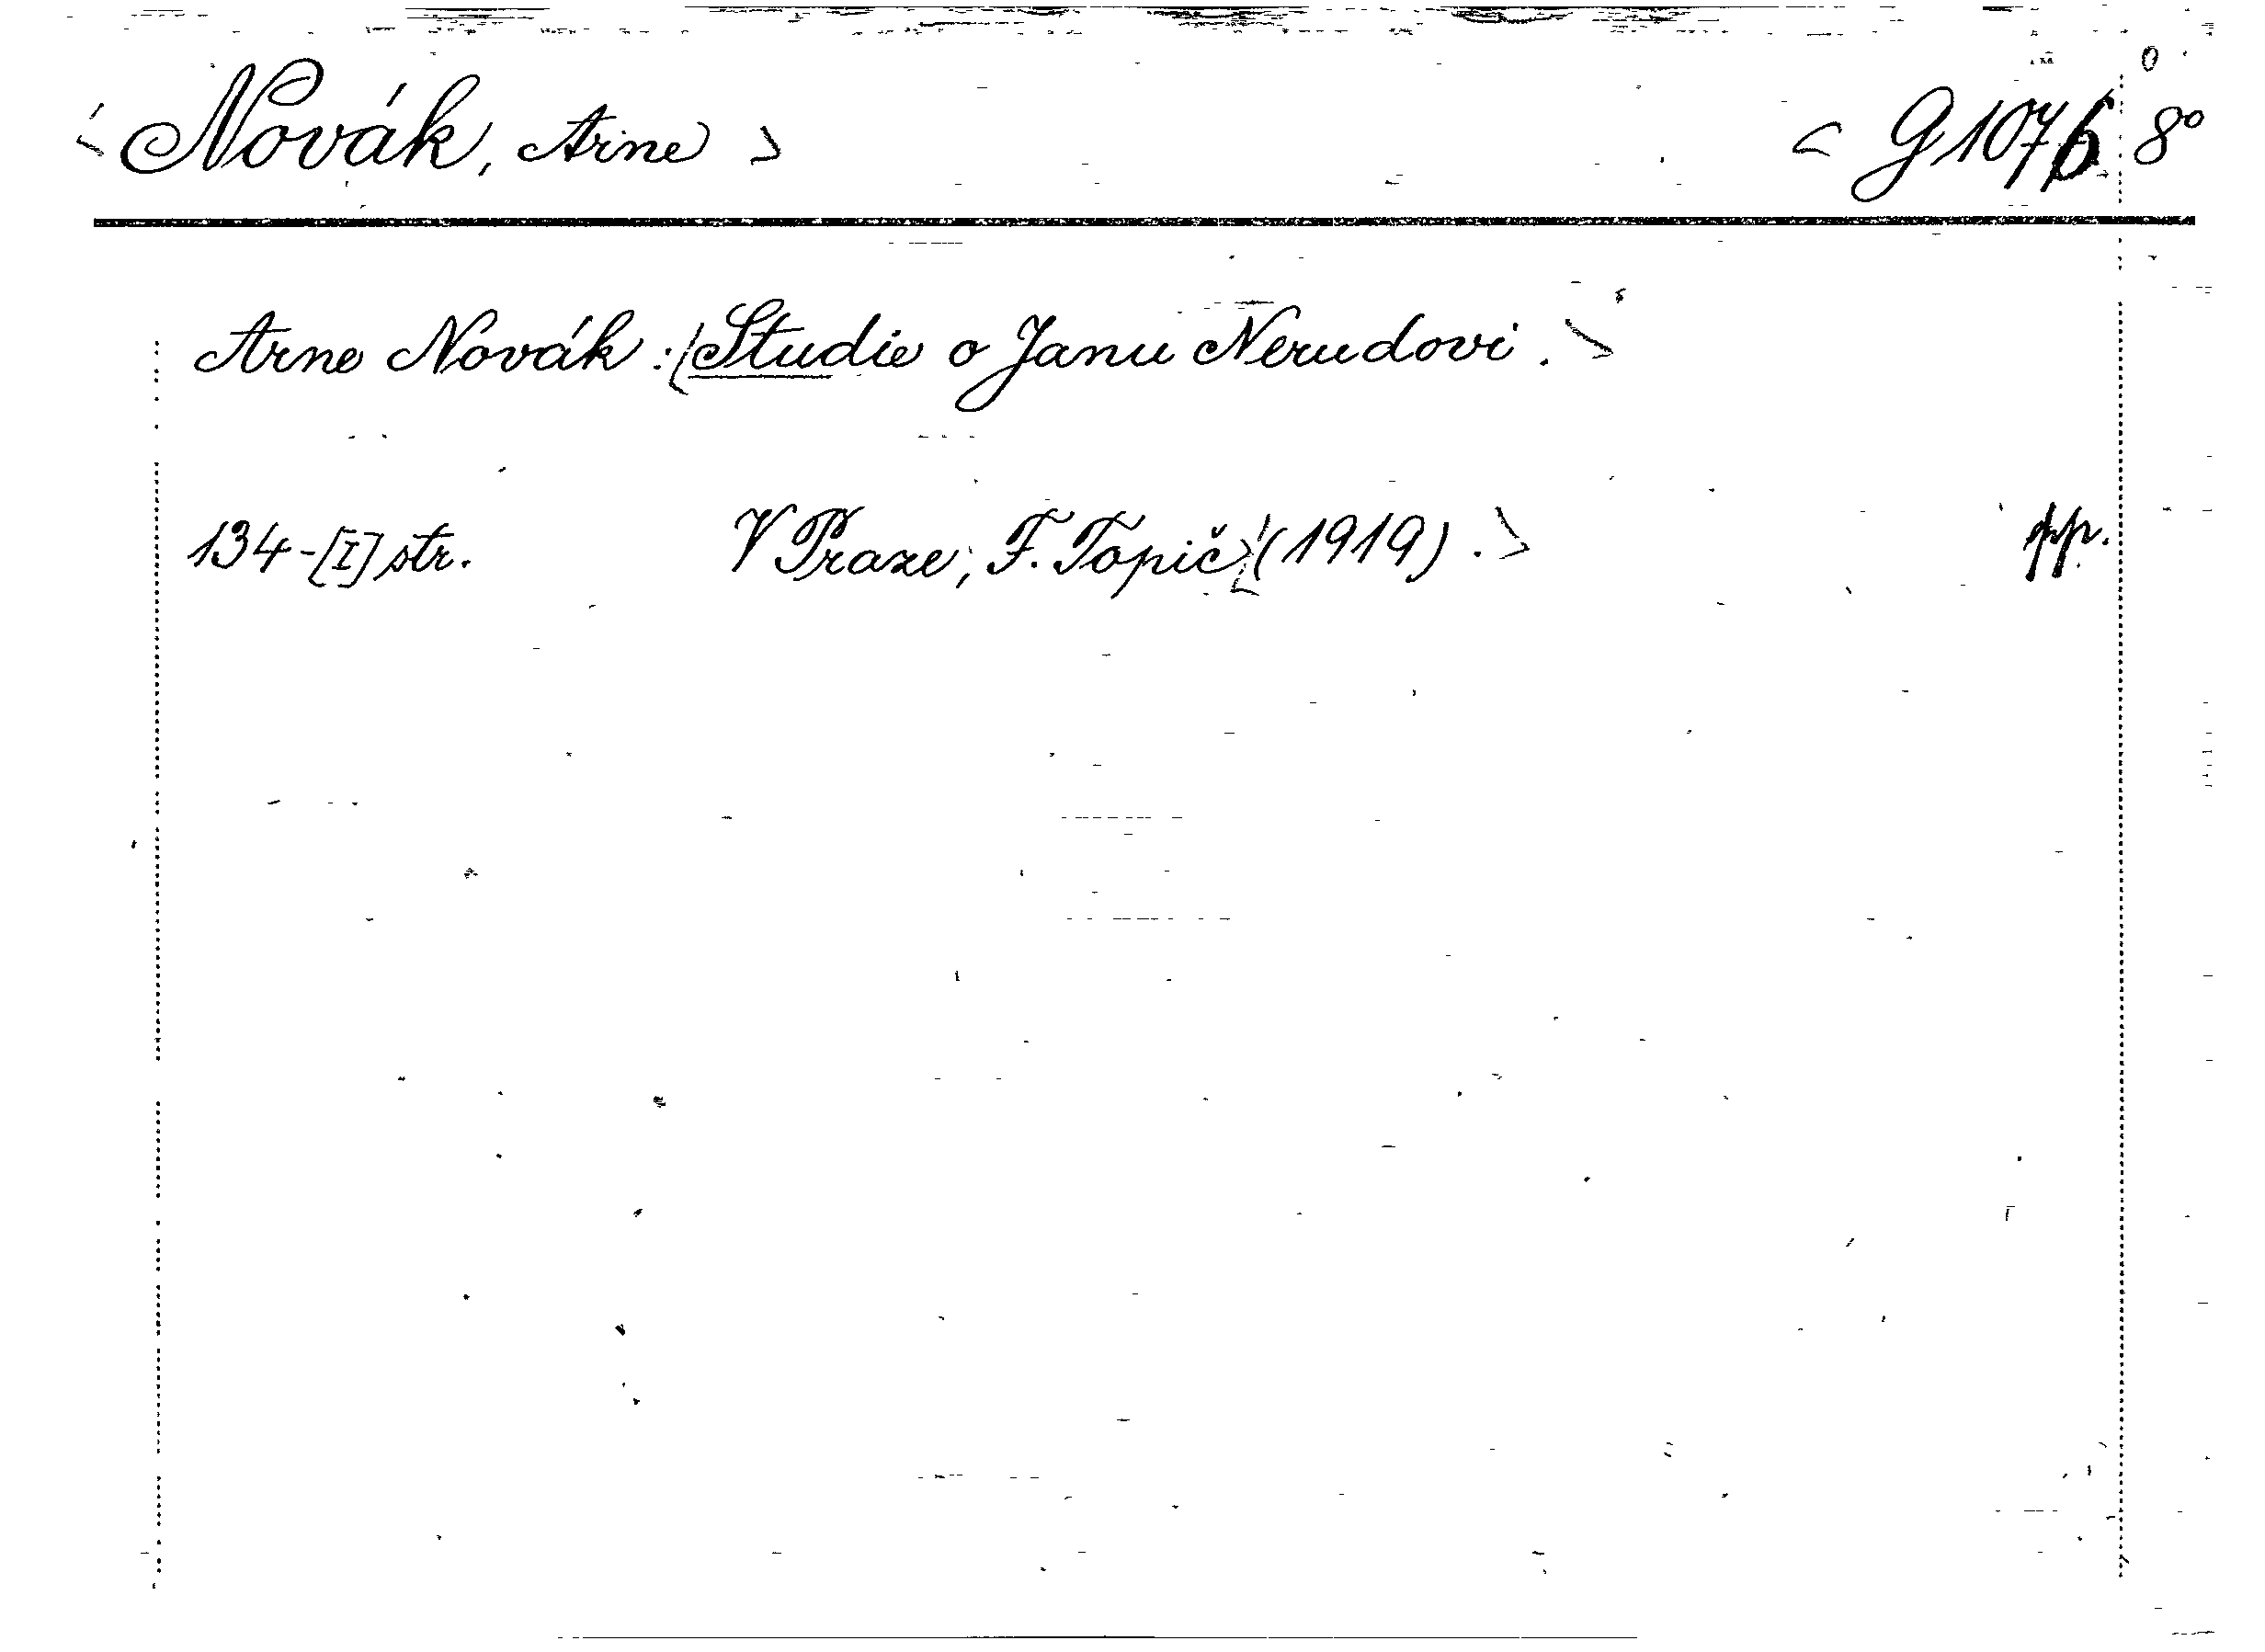 <Novák, Arne> <G 1076 8°
Arne Novák: <Studie o Janu Nerudovi.>
134-[I] str. V Praze, F. Topič <(1919).> pp.